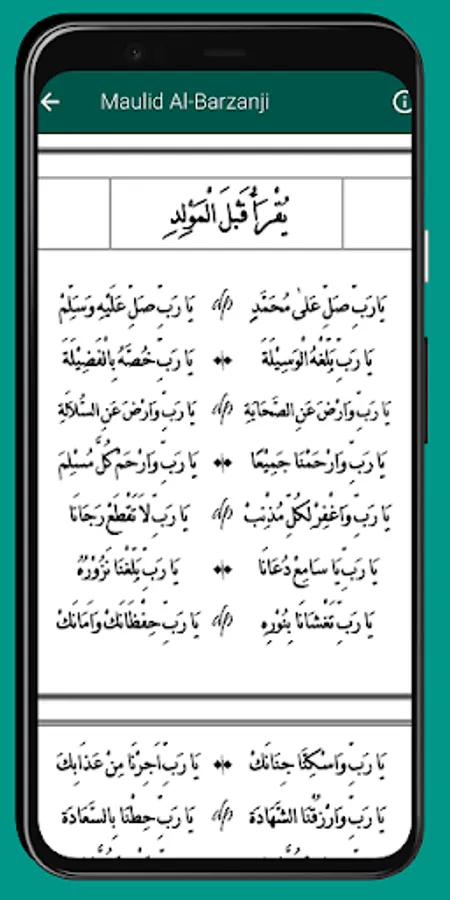 Maulid Al-Barzanji
يُقْرَأُ قَبْلَ الْمَوْلِدِ
يَا رَبِّ صَلِّ عَلَىٰ مُحَمَّدٍ يَا رَبِّ صَلِّ عَلَيْهِ وَسَلِّمْ
يَا رَبِّ بَلِّغْهُ الْوَسِيْلَةَ يَا رَبِّ خُصَّهُ بِالْفَضِيْلَةَ
يَا رَبِّ وَارْضَ عَنِ الصَّحَابَةِ يَا رَبِّ وَارْضَ عَنِ السُّلَالَةِ
يَا رَبِّ وَارْحَمْنَا جَمِيْعًا يَا رَبِّ وَارْحَمْ كُلَّ مُسْلِمْ
يَا رَبِّ وَاغْفِرْ لِكُلِّ مُذْنِبْ يَا رَبِّ لَا تَقْطَعْ رَجَانَا
يَا رَبِّ يَا سَامِعْ دُعَانَا يَا رَبِّ بَلِّغْنَا نَزُوْرُهُ
يَا رَبِّ تَغْشَانَا بِنُوْرِهِ يَا رَبِّ حِفْظَانَكْ وَاَمَانَكْ
يَا رَبِّ وَاسْكِنَّا جِنَانَكْ يَا رَبِّ اَجِرْنَا مِنْ عَذَابِكَ
يَا رَبِّ وَارْزُقْنَا الشَّهَادَة يَا رَبِّ حِطْنَا بِالسَّعَادَة